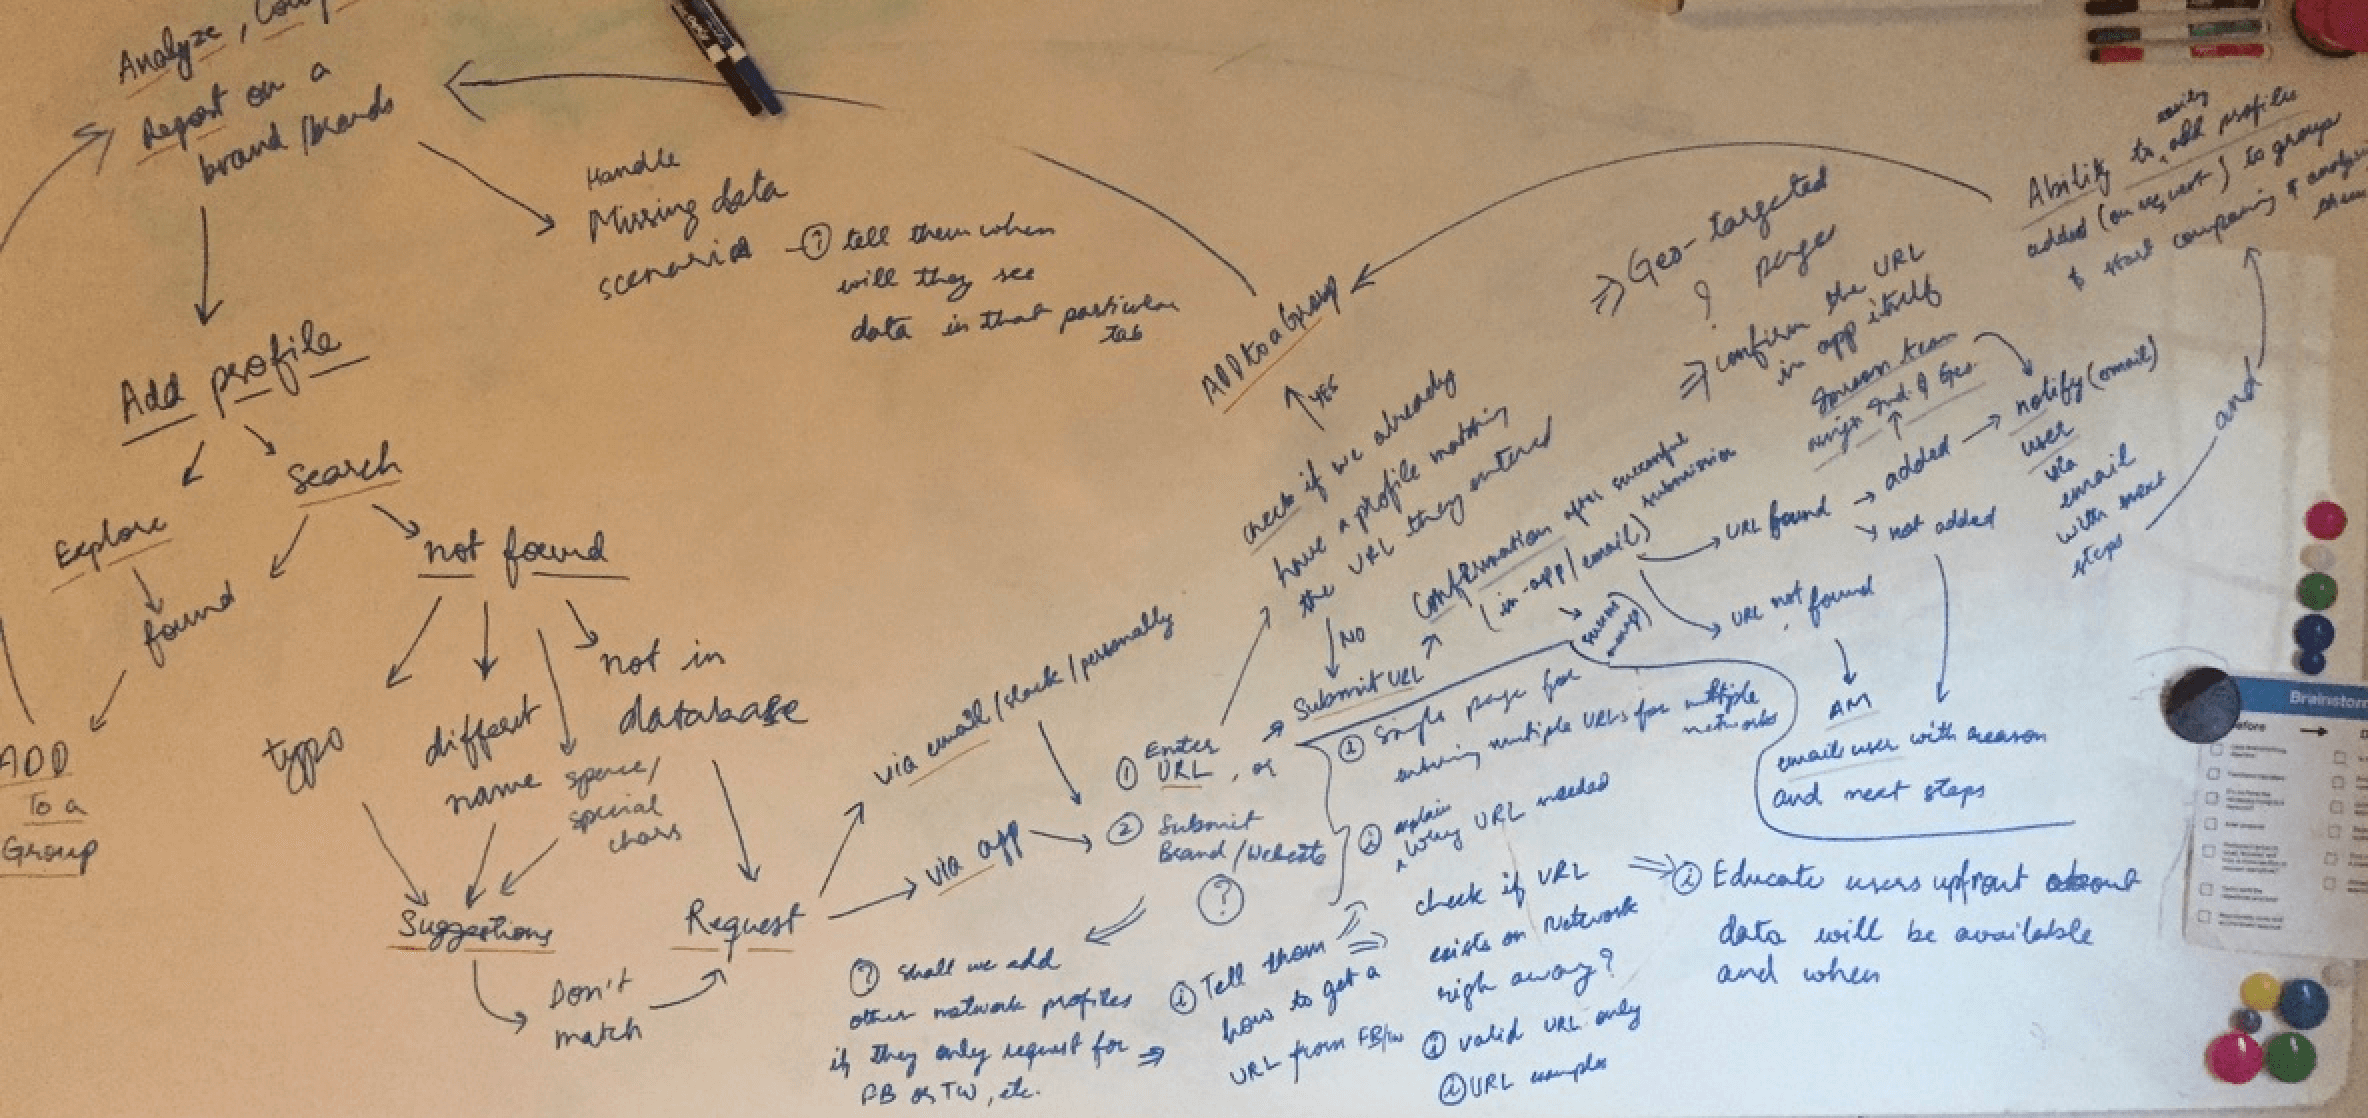 Analyze,
Report on a
brand/brands
Handle
Missing data
scenarios
① tell them when
will they see
data in that particular
tab
Add profile
Explore
Search
found
not found
ADD
To a
Group
typo
different
name
space/
special
chars
not in
database
Suggestions
Don't
match
Request
via email/slack/personally
via app
① Enter
URL, or
② Submit
Brand/Website
?
? Shall we add
other network profiles
if they only request for
FB or TW, etc.
ADD to a Group
YES
check if we already
have a profile matching
the URL they entered
NO
Submit URL
Confirmation after successful
submission
(in-app/email)
① Single page for
entering multiple URLs for multiple
networks
② explain
why URL needed
i Tell them
how to get a
URL from FB/tw
check if URL
exists on Network
righ away?
i valid URL only
i URL examples
i Educate users upfront about
data will be available
and when
⇒ Geo-targeted
? page
⇒ confirm the URL
in app itself
team
assign Ind. & Geo.
URL found
added
not added
URL not found
AM
email user with reason
and next steps
notify (email)
user
via
email
with next
steps
and
Ability to easily add profiles
added (on request) to group
& start comparing & analysi
them
Brainstorm